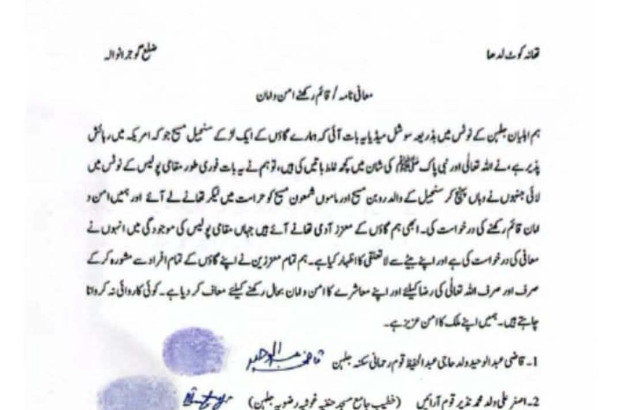 تھانہ کوٹ لدھا
ضلع گوجرانوالہ
معافی نامہ / قائم رکھنے امن و امان
ہم اہلیان جلہن کے نوٹس میں بذریعہ سوشل میڈیا یہ بات آئی کہ ہمارے گاؤں کے ایک لڑکے سنھیل مسیح جو کہ امریکہ میں رہائش
پذیر ہے، نے اللہ تعالٰی اور نبی پاک ﷺ کی شان میں کچھ غلط باتیں کی ہیں، تو ہم نے یہ بات فوری طور مقامی پولیس کے نوٹس میں
لائی جنہوں نے وہاں پہنچ کر سنھیل کے والد روبن مسیح اور ماموں شمعون مسیح کو حراست میں لیکر تھانے لے آئے اور ہمیں امن و
امان قائم رکھنے کی درخواست کی۔ ابھی ہم گاؤں کے معزز آدمی تھانے آئے ہیں جہاں مقامی پولیس کی موجودگی میں انہوں نے
معافی کی درخواست کی ہے اور اپنے بیٹے سے لاتعلقی کا اظہار کیا ہے۔ ہم تمام معززین نے اپنے گاؤں کے تمام افراد سے مشورہ کر کے
صرف اور صرف اللہ تعالٰی کی رضا کیلئے اور اپنے معاشرے کا امن و امان بحال رکھنے کیلئے معاف کر دیا ہے۔ کوئی کاروائی نہ کروانا
چاہتے ہیں۔ ہمیں اپنے ملک کا امن عزیز ہے۔
1۔ قاضی عبدالوحید ولد حاجی عبدالحفیظ قوم رحمانی سکنہ جلہن
2۔ اصغر علی ولد محمد نذیر قوم آرائیں (خطیب جامع مسجد حنفیہ غوثیہ رضویہ جلہن)